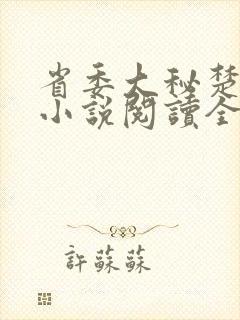 省委大秘楚
小說閱讀全
許蘇蘇